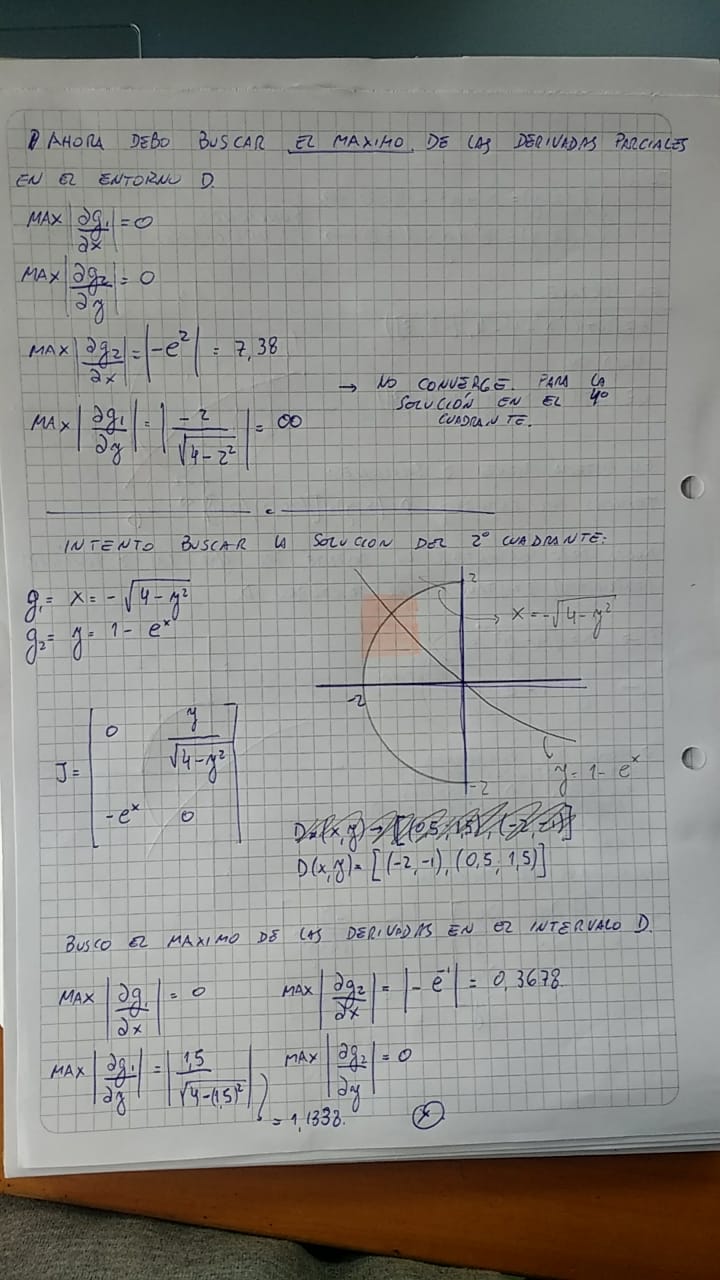 AHORA DEBO BUSCAR EL MAXIMO DE LAS DERIVADAS PARCIALES
EN EL ENTORNO D.
MAX |∂g₁/∂x| = 0
MAX |∂g₂/∂y| = 0
MAX |∂g₂/∂x| = |-e²| = 7,38
MAX |∂g₁/∂y| = |-2/√(4-2²)| = ∞
→ NO CONVERGE. PARA LA
SOLUCIÓN EN EL 4°
CUADRANTE.
INTENTO BUSCAR LA SOLUCION DEL 2° CUADRANTE:
g₁= x = -√(4-y²)
g₂= y = 1 - eˣ
2
x = -√(4-y²)
-2
-2
y = 1 - eˣ
J = [0 y/√(4-y²)
-eˣ 0]
D(x,y) = [(-2,-1), (0,5; 1,5)]
BUSCO EL MAXIMO DE LAS DERIVADAS EN EL INTERVALO D.
MAX |∂g₁/∂x| = 0
MAX |∂g₂/∂x| = |-e⁻¹| = 0,3678
MAX |∂g₁/∂y| = |1,5/√(4-(1,5)²)|
= 1,1338.
MAX |∂g₂/∂y| = 0